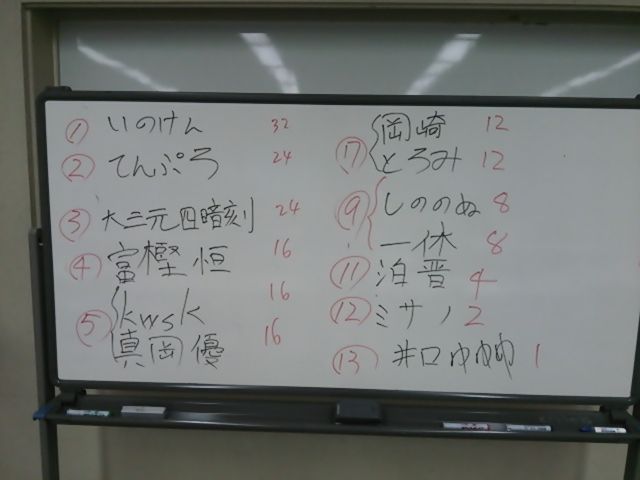 ① いのけん 32
② てんぷろ 24
③ 大三元四暗刻 24
④ 富樫 恒 16
⑤ kwsk 16
真岡 優 16
⑦ 岡崎 12
とろみ 12
⑨ しののぬ 8
一休 8
⑪ 泊 晋 4
⑫ ミサノ 2
⑬ 井口ゆゆゆ 1